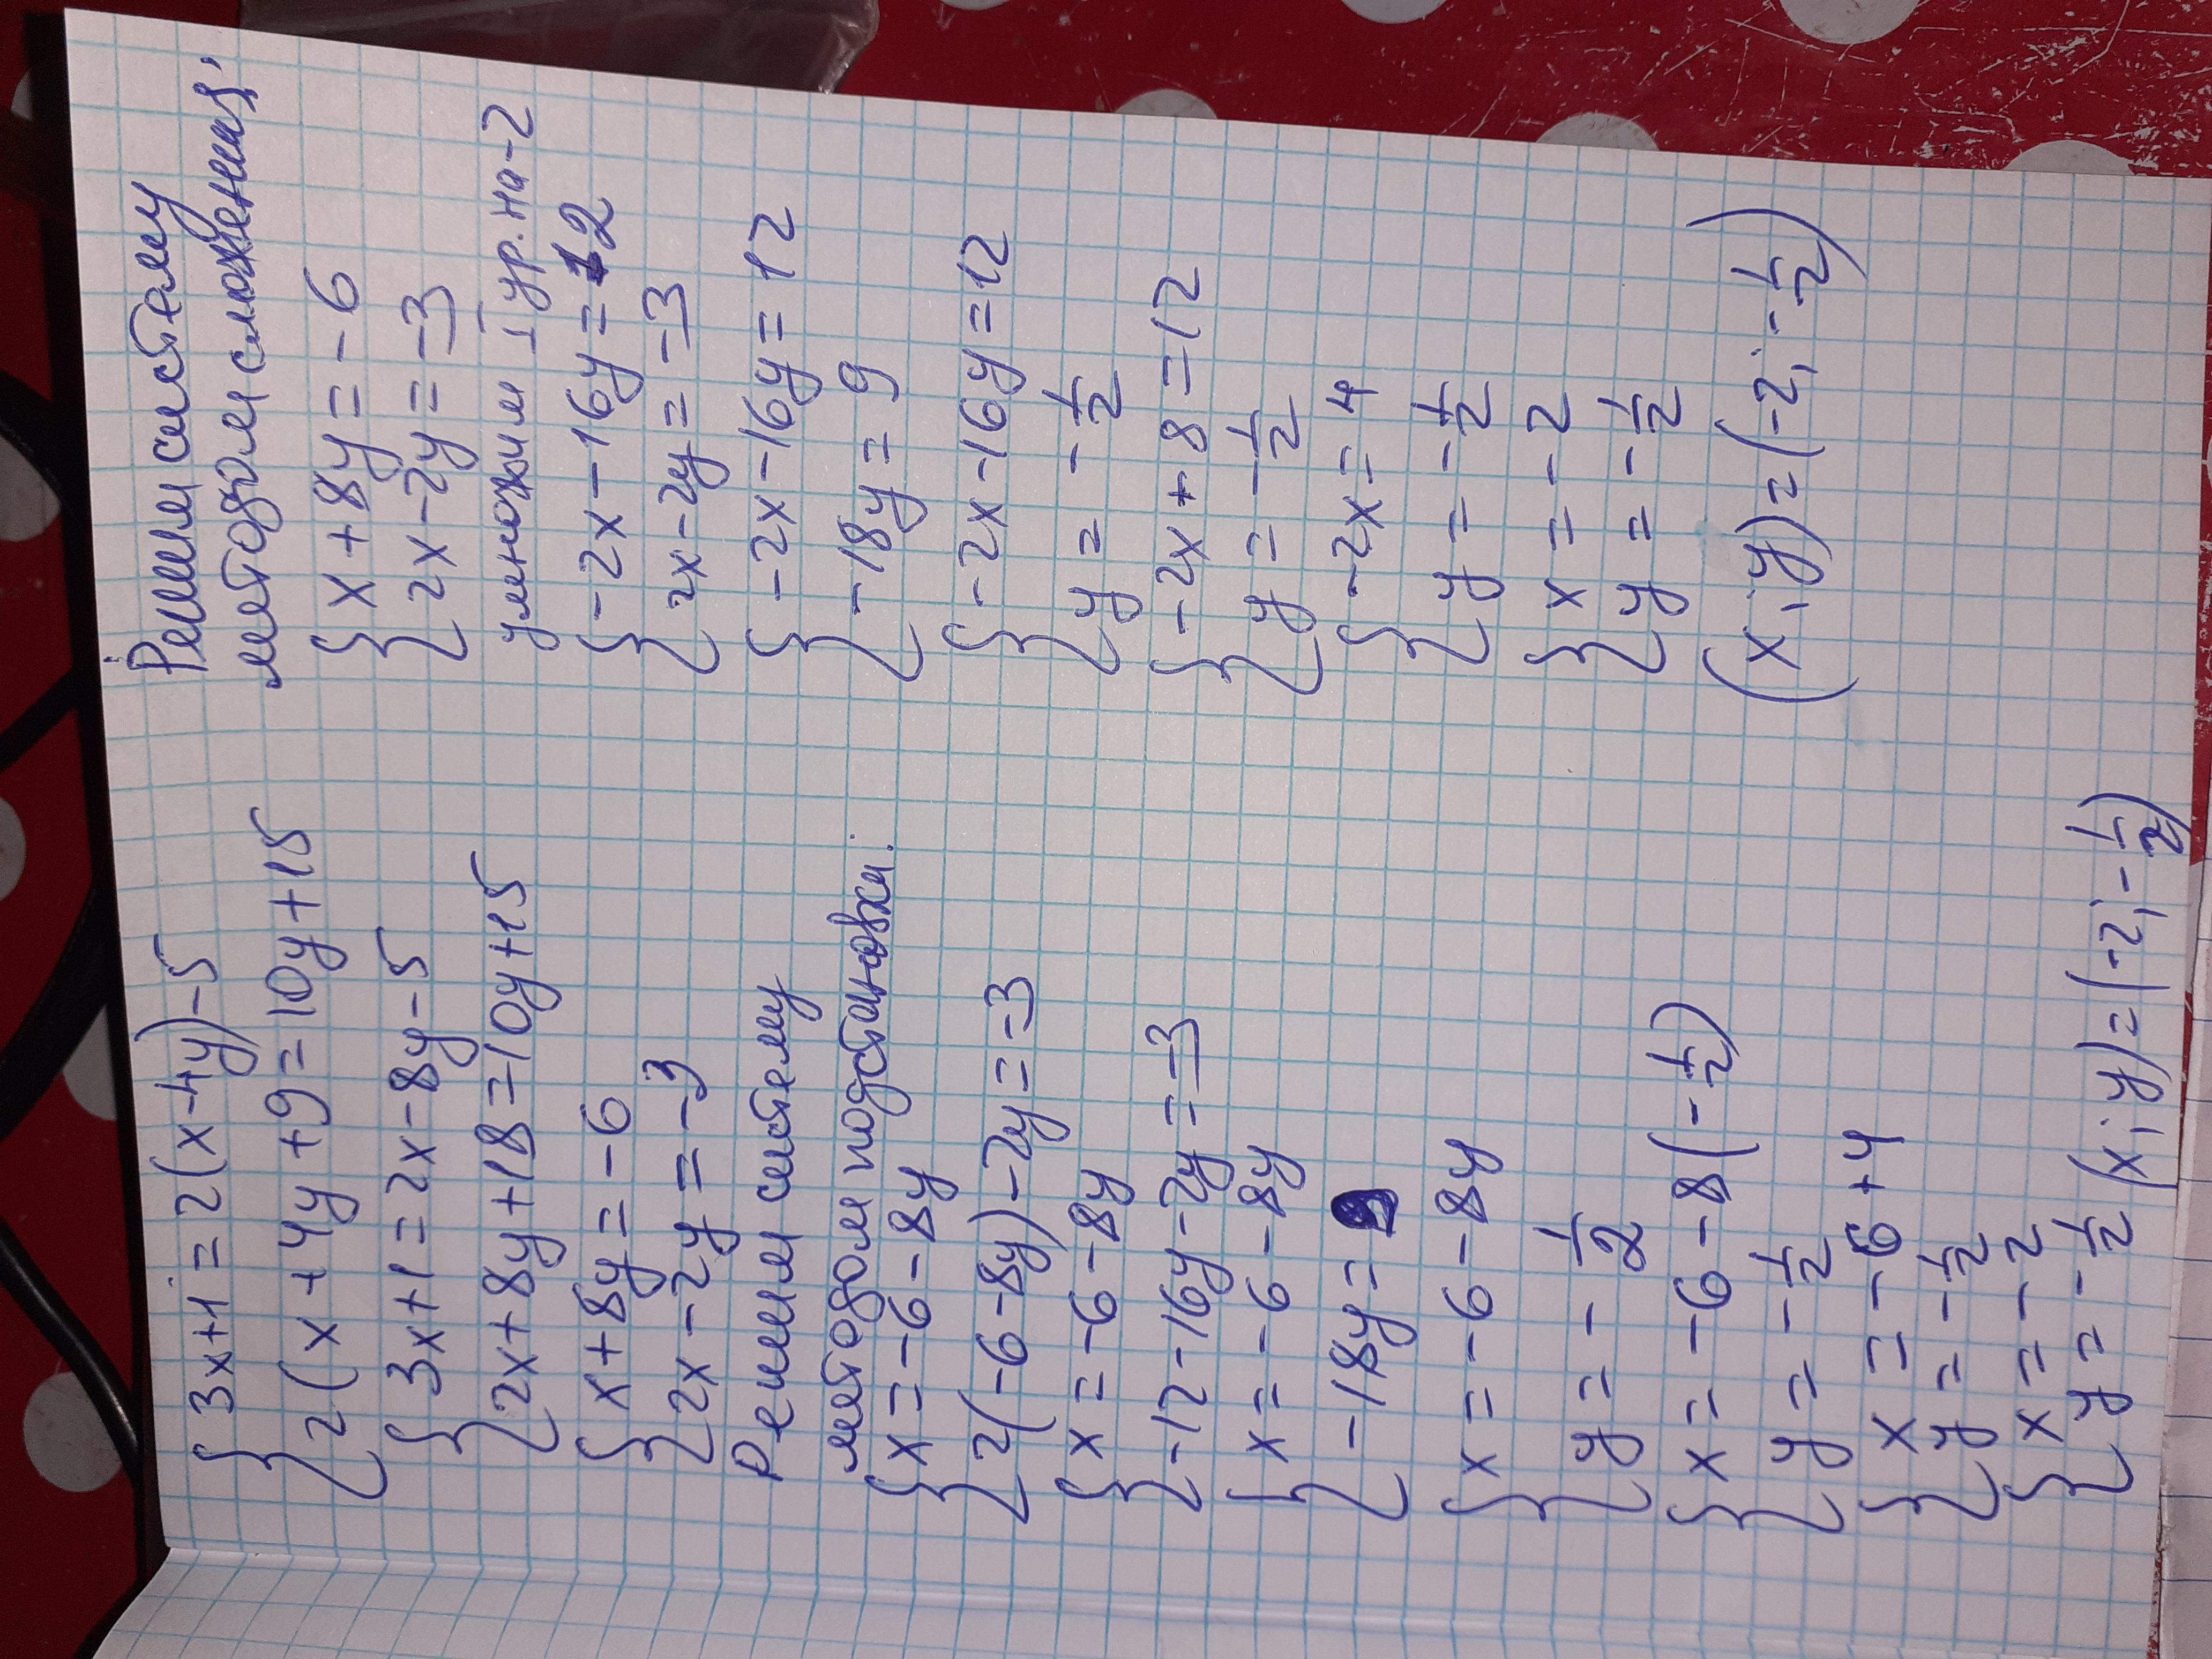 3x+1=2(x-4y)-5
2(x+4y+9=10y+15
3x+1=2x-8y-5
2x+8y+18=10y+15
x+8y=-6
2x-2y=-3
Решим систему
методом подстановки:
x=-6-8y
2(-6-8y)-2y=-3
x=-6-8y
-12-16y-2y=-3
x=-6-8y
-18y=9
x=-6-8y
y=-1/2
x=-6-8(-1/2)
y=-1/2
x=-6+4
y=-1/2
x=-2
y=-1/2 (x;y)=(-2;-1/2)
Решим систему
методом сложения,
x+8y=-6
2x-2y=-3
умножим 1 ур. на -2
-2x-16y=12
2x-2y=-3
-2x-16y=12
-18y=9
-2x-16y=12
y=-1/2
-2x+8=12
y=-1/2
-2x=4
y=-1/2
x=-2
y=-1/2
(x;y)=(-2;-1/2)